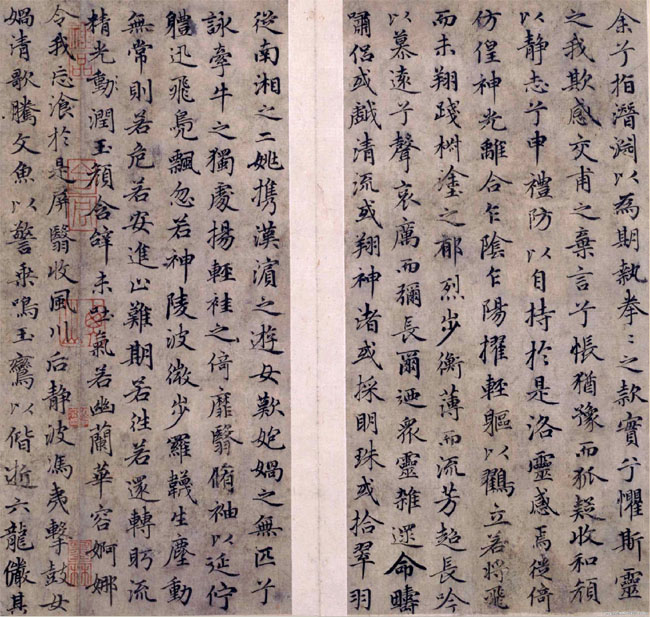 余兮指潛淵以為期執拳〻之款實兮懼斯靈
之我欺感交甫之棄言兮悵猶豫而狐疑收和顏
以静志兮申禮防以自持於是洛靈感焉徙倚
仿偟神光離合乍陰乍陽擢輕軀以鶴立若將飛
而未翔踐椒塗之郁烈步衡薄而流芳超長吟
以慕遠兮聲哀厲而彌長爾迺衆靈雜遝命疇
嘯侶或戯清流或翔神渚或採明珠或拾翠羽
從南湘之二姚攜漢濱之遊女歎匏媧之無匹兮
詠牽牛之獨處揚輕袿之倚靡翳脩袖以延佇
軆迅飛鳧飄忽若神陵波微步羅韈生塵動
無常則若危若安進止難期若往若還轉眄流
精光動潤玉顏含辝未吐氣若幽蘭華容婀娜
令我忘飡於是屏翳收風川后静波馮夷擊鼓女
媧清歌騰文魚以警乗鳴玉鸞以偕逝六龍儼其